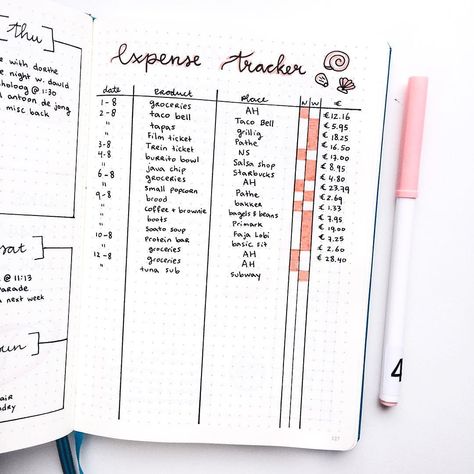 thu
e with dorthe
e night w. david
choloog @ 1:30
d antoon de jong
misc back
sat
@ 11:13
parade
n next week
sun
air
ndry
Expense tracker
date product place N W €
1-8 groceries AH €12.16
2-8 taco bell Taco Bell €5.95
" tapas grillig €18.25
" Film ticket Pathe €16.50
3-8 Trein ticket NS €17.00
4-8 burrito bowl Salsa shop €8.95
" java chip Starbucks €4.80
6-8 groceries AH €23.79
" small popcorn Pathe €2.69
9-8 brood bakker €1.33
" coffee + brownie bagels & beans €7.95
" boots Primark €19.00
10-8 Soato soup Faja Lobi €7.25
" Protein bar basic fit €2.60
12-8 groceries AH €28.40
groceries AH
" tuna sub subway
127
4